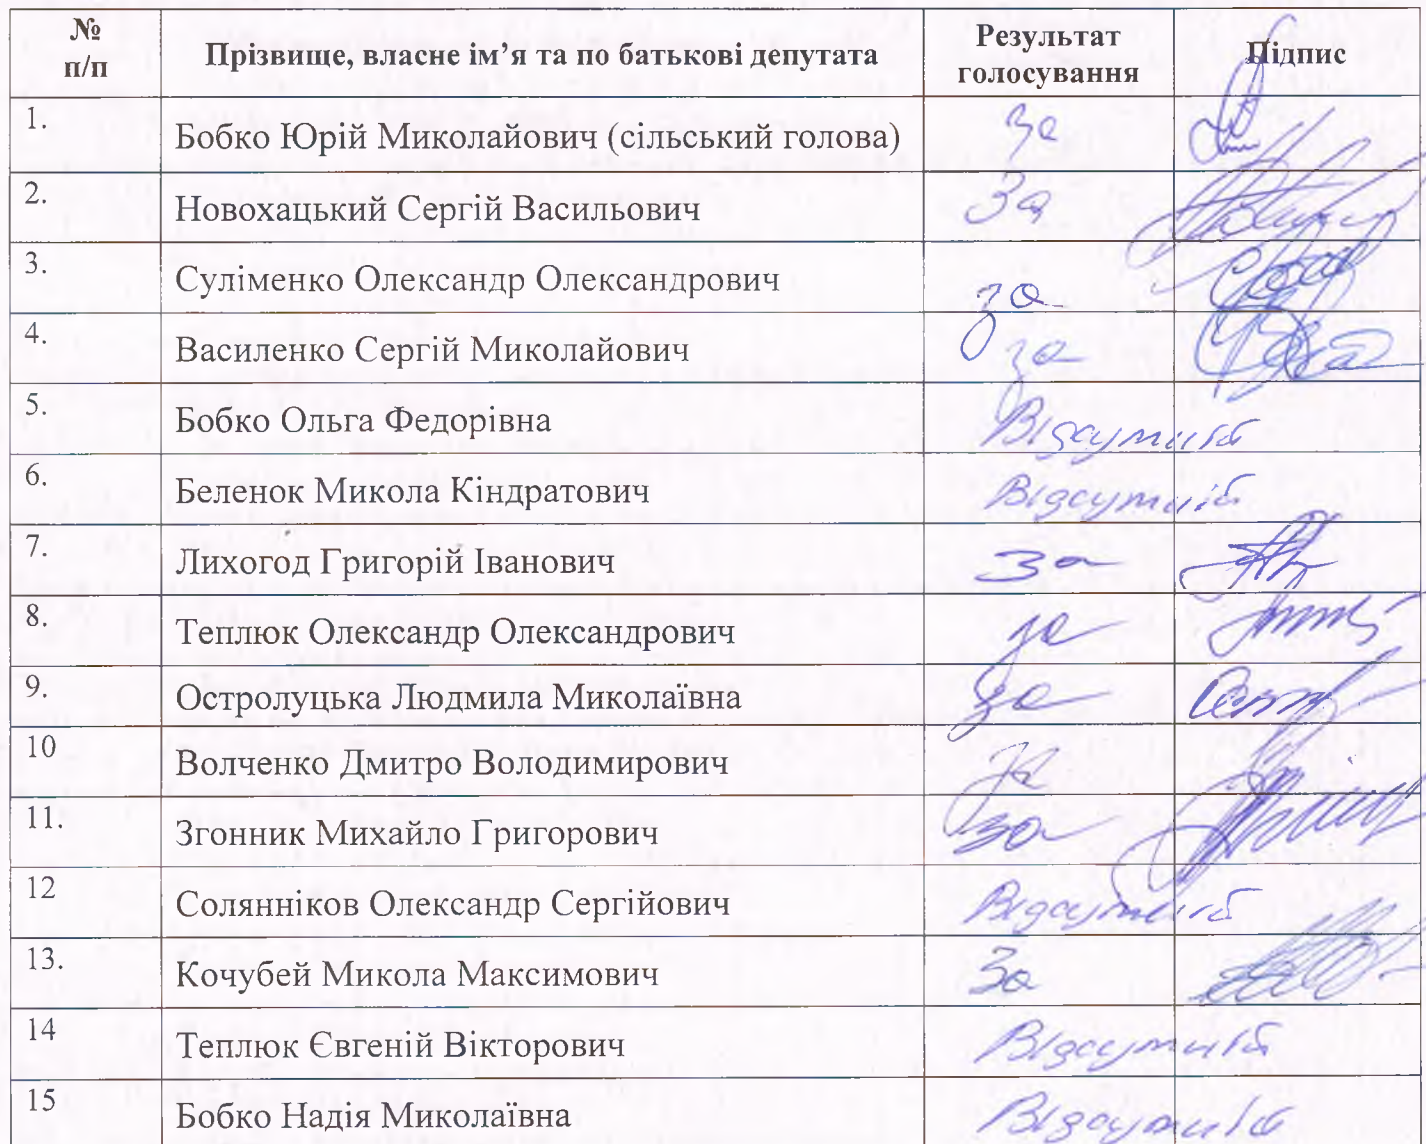 № п/п Прізвище, власне ім’я та по батькові депутата Результат голосування Підпис
1. Бобко Юрій Миколайович (сільський голова) За
2. Новохацький Сергій Васильович За
3. Суліменко Олександр Олександрович за
4. Василенко Сергій Миколайович за
5. Бобко Ольга Федорівна Відсутній
6. Беленок Микола Кіндратович Відсутній
7. Лихогод Григорій Іванович за
8. Теплюк Олександр Олександрович за
9. Остролуцька Людмила Миколаївна за
10 Волченко Дмитро Володимирович за
11. Згонник Михайло Григорович за
12 Солянніков Олександр Сергійович Відсутній
13. Кочубей Микола Максимович За
14 Теплюк Євгеній Вікторович Відсутній
15 Бобко Надія Миколаївна Відсутній